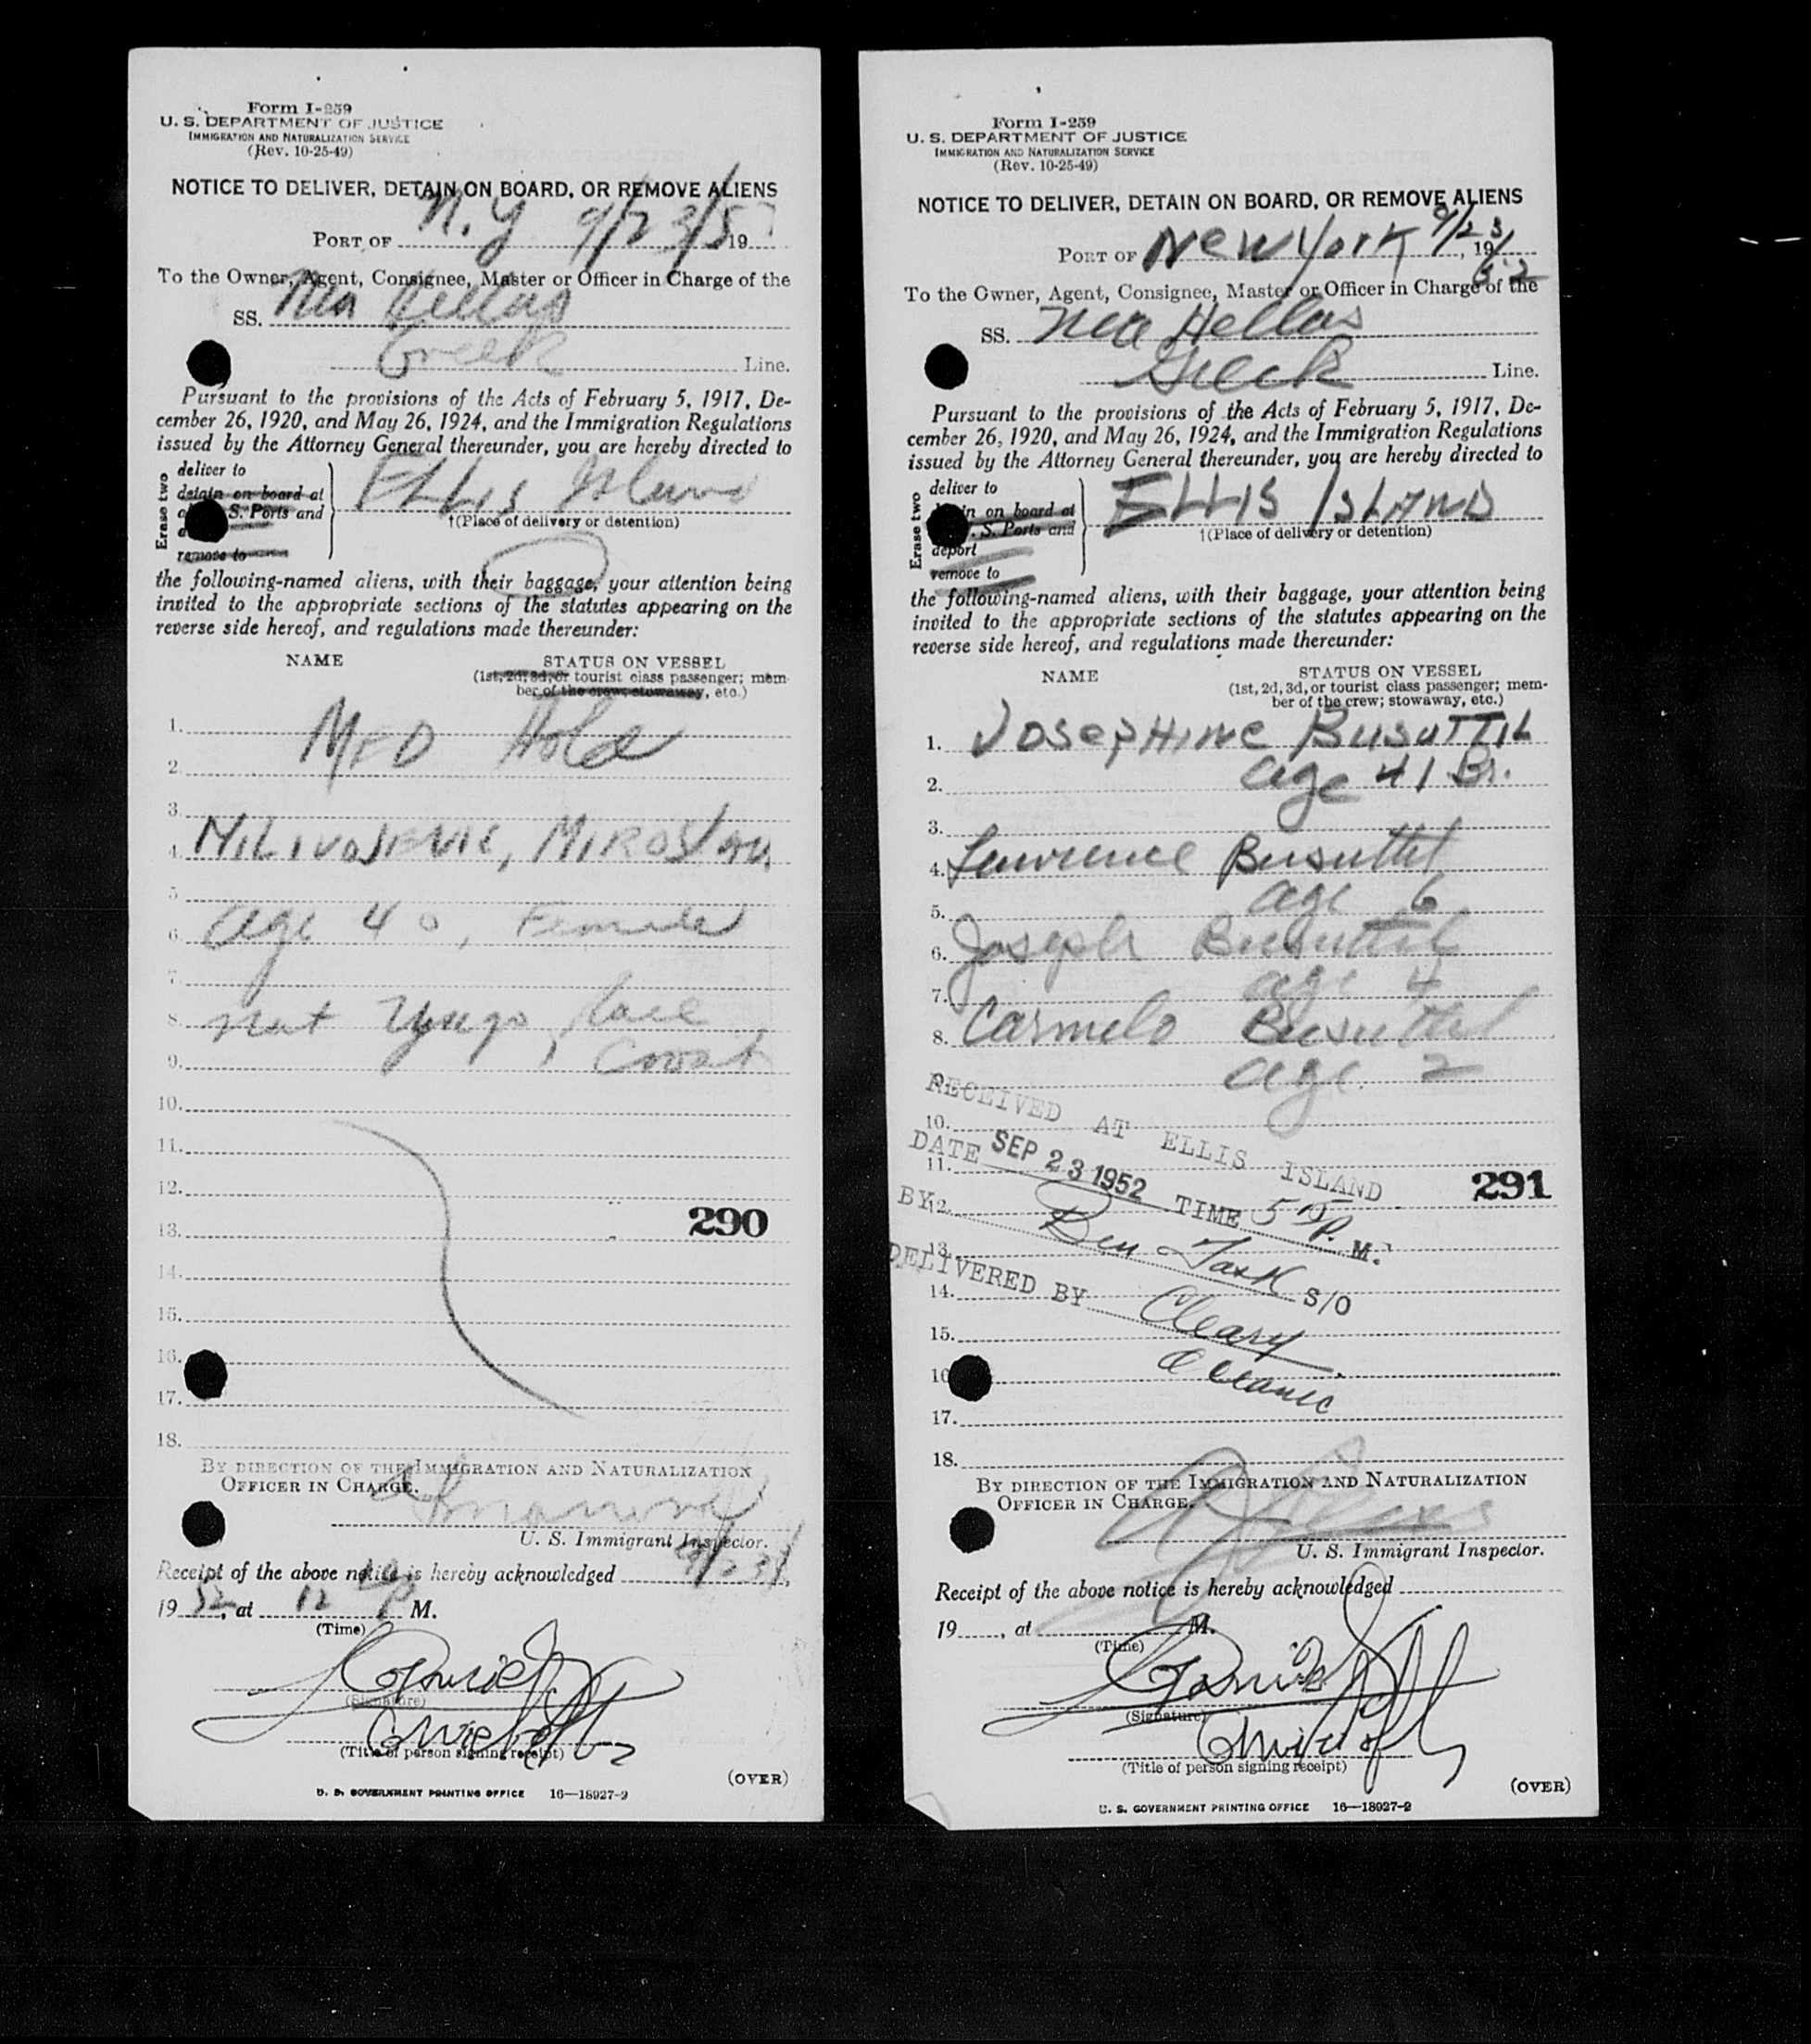 Form I-259
U. S. DEPARTMENT OF JUSTICE
IMMIGRATION AND NATURALIZATION SERVICE
(Rev. 10-25-49)
NOTICE TO DELIVER, DETAIN ON BOARD, OR REMOVE ALIENS
PORT OF N.Y 9/23/5 19
To the Owner, Agent, Consignee, Master or Officer in Charge of the
SS. Nea Hellas
Greek Line.
Pursuant to the provisions of the Acts of February 5, 1917, De-
cember 26, 1920, and May 26, 1924, and the Immigration Regulations
issued by the Attorney General thereunder, you are hereby directed to
Erase two
deliver to
detain on board at
S. Ports and
remove to
ELLIS Island
†(Place of delivery or detention)
the following-named aliens, with their baggage, your attention being
invited to the appropriate sections of the statutes appearing on the
reverse side hereof, and regulations made thereunder:
NAME STATUS ON VESSEL
(1st, 2d, 3d, or tourist class passenger; mem-
ber of the crew; stowaway, etc.)
1. MED Hold
2.
3.
4. MILIVOJEVIC, MIROSLAV
5
6. age 40, Female
7.
8. nat Yugo, Race
9. Croat
10.
11.
12.
290
13.
14.
15.
16.
17.
18.
BY DIRECTION OF THE IMMIGRATION AND NATURALIZATION
OFFICER IN CHARGE.
U. S. Immigrant Inspector.
Receipt of the above notice is hereby acknowledged 9/23/
19 52, at 12 P M.
(Time)
(Signature)
(Title of person signing receipt)
(OVER)
U. S. GOVERNMENT PRINTING OFFICE 16—18927-2
Form I-259
U. S. DEPARTMENT OF JUSTICE
IMMIGRATION AND NATURALIZATION SERVICE
(Rev. 10-25-49)
NOTICE TO DELIVER, DETAIN ON BOARD, OR REMOVE ALIENS
PORT OF New York 9/23/52, 19
To the Owner, Agent, Consignee, Master or Officer in Charge of the
SS. Nea Hellas
Greek Line.
Pursuant to the provisions of the Acts of February 5, 1917, De-
cember 26, 1920, and May 26, 1924, and the Immigration Regulations
issued by the Attorney General thereunder, you are hereby directed to
Erase two
deliver to
in on board at
. S. Ports and
deport
remove to
ELLIS ISLAND
†(Place of delivery or detention)
the following-named aliens, with their baggage, your attention being
invited to the appropriate sections of the statutes appearing on the
reverse side hereof, and regulations made thereunder:
NAME STATUS ON VESSEL
(1st, 2d, 3d, or tourist class passenger; mem-
ber of the crew; stowaway, etc.)
1. Josephine Busuttil
2. age 41 Br.
3.
4. Lawrence Busuttil
5. age 6
6. Joseph Busuttil
7. age 4
8. Carmelo Busuttil
9. age 2
RECEIVED AT ELLIS ISLAND
10.
DATE SEP 23 1952 TIME 5 10 P. M.
11.
291
BY Ben Task S/O
12.
13.
DELIVERED BY Cleary
14.
15.
Oceanic
16
17.
18.
BY DIRECTION OF THE IMMIGRATION AND NATURALIZATION
OFFICER IN CHARGE.
U. S. Immigrant Inspector.
Receipt of the above notice is hereby acknowledged
19, at M.
(Time)
(Signature)
(Title of person signing receipt)
(OVER)
U. S. GOVERNMENT PRINTING OFFICE 16—18927-2